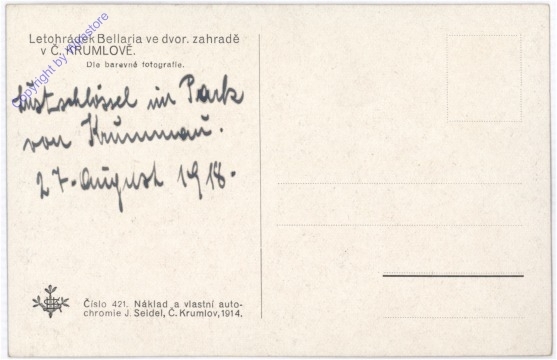 Letohrádek Bellaria ve dvor. zahradě
v Č. KRUMLOVĚ.
Dle barevné fotografie.
Lustschlössel im Park
von Krummau.
27. August 1918.
Číslo 421. Náklad a vlastní auto-
chromie J. Seidel, Č. Krumlov, 1914.